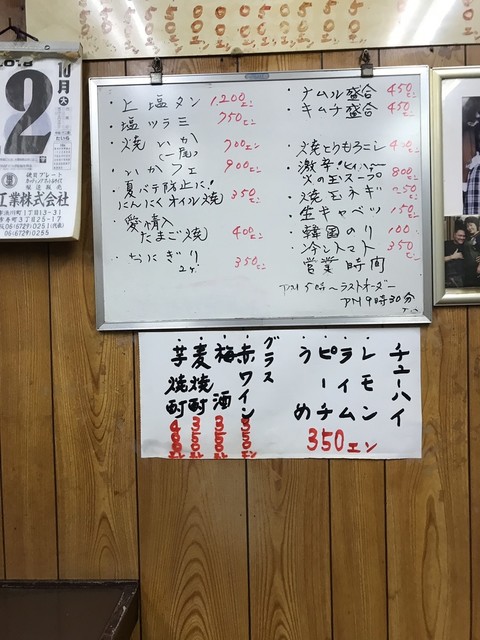 10月
大
2
工業株式会社
・上塩タン 1,200エン
・塩ツラミ 750エン
・焼いか 700エン
(一ぱい)
・いかフェ 900エン
・夏バテ防止に!
にんにくオイル焼 350エン
・愛情入
たまご焼 400エン
・おにぎり 350エン
2ケ
・ナムル盛合 450エン
・キムチ盛合 450エン
・焼とりもろこし
・激辛!ヒィハー
火の玉スープ 800エン
・焼玉ネギ
・生キャベツ 150エン
・韓国のり 100エン
・冷しトマト 350エン
営業時間
PM 5時〜ラストオーダー
PM 9時30分
チューハイ
・レモン
・ライム
・ピーチ
・うめ
350エン
グラス
・赤ワイン 350エン
・梅酒 350エン
・麦焼酎 350エン
・芋焼酎 400エン